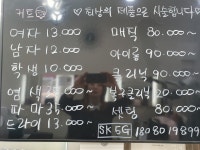 커트 최상의 제품으로 시술합니다
여자 13.000
남자 12.000
학생 10.000
염색 25.000~
파마 35.000~
드라이 13.000~
매직 80.000~
아이롱 90.000~
크리닉 90.000~
볼륨크리닉 20.000~
셋팅 80.000~
SK 5G 1808019899